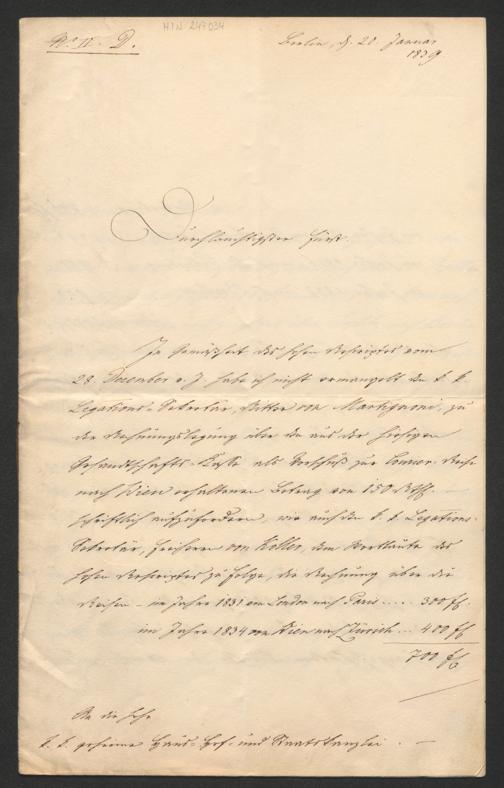 HIN 247034
No II. D.
Berlin, d. 20 Januar
1839
Durchlauchtigster Fürst
In Gemäßheit des hohen Rescriptes vom
28 Dezember v. J. habe ich nicht ermangelt den k. k.
Legations-Sekretär, Ritter von Martignoni, zu
der Rechnungslegung über den aus der hiesigen
Gesandtschafts-Kasse als Vorschuß zur Courier-Reise
nach Wien erhaltenen Betrag von 150
schriftlich aufzufordern, wie auch den k. k. Legations-
Sekretär, Freiherrn von Koller, dem Wortlaute des
hohen Rescriptes zu Folge, die Rechnung über die
Reisen – im Jahre 1831 von London nach Paris .... 300 f.
im Jahre 1834 von Wien nach Zürich ... 400 f
700 f
An die hohe
k. k. geheime Haus- Hof- und Staatskanzlei.